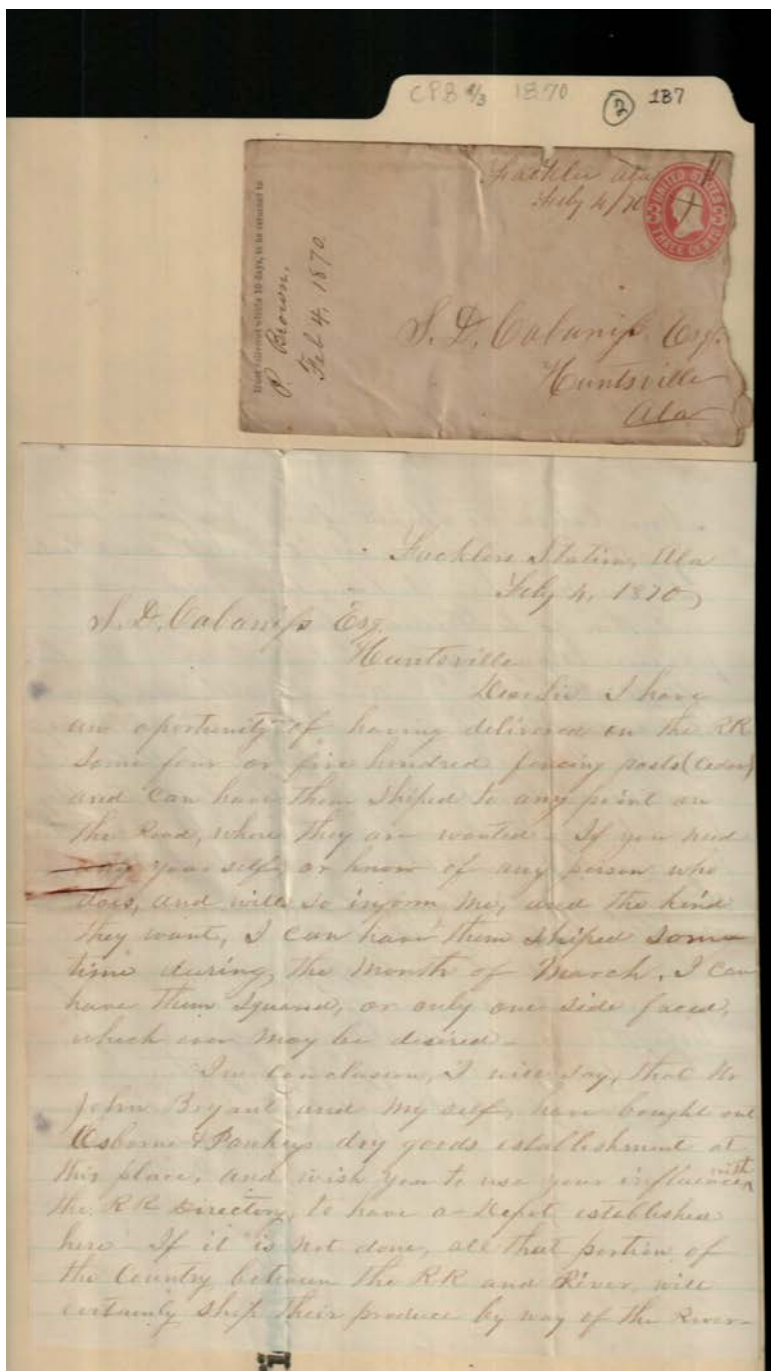 CPB 4/3 1870 2 187
Fackler Ala
Feby 4/70
UNITED STATES
THREE CENTS
If not delivered within 10 days, to be returned to
P. Brown.
Feb 4. 1870.
S. D. Cabaniss Esq.
Huntsville
Ala
Facklers Station, Ala
Feby 4, 1870
S. D. Cabaniss Esq.
Huntsville
Dear Sir I have
an oportunity of having delivered on the RR
some four or five hundred fencing posts (Cedar)
and can have them shiped to any point on
the Road, where they are wanted - If you need
any your self, or know of any person who
does, and will so inform me, and the kind
they want, I can have them shiped some
time during the month of March. I can
have them squared, or only one side faced,
which ever may be desired -
In conclusion, I will say, that Mr
John Bryant and my self, have bought out
Osborne & Pankeys dry goods establishment at
this place, and wish you to use your influence with
the RR Directory, to have a Depot established
here - If it is not done, all that portion of
the Country between the RR and River, will
certainly ship their produce by way of the River -